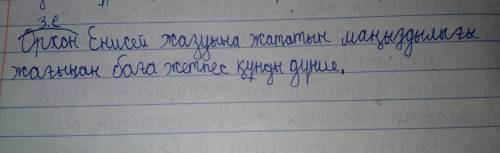 з.е
Орхон Енисей жазуына жататын маңыздылығы
жағынан баға жетпес құнды дүние.